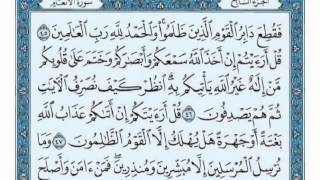 الجزء السابع سورة الأنعام
فَقُطِعَ دَابِرُ الْقَوْمِ الَّذِينَ ظَلَمُوا۟ ۚ وَالْحَمْدُ لِلَّهِ رَبِّ الْعَٰلَمِينَ ٤٥
قُلْ أَرَءَيْتُمْ إِنْ أَخَذَ اللَّهُ سَمْعَكُمْ وَأَبْصَٰرَكُمْ وَخَتَمَ عَلَىٰ قُلُوبِكُم
مَّنْ إِلَٰهٌ غَيْرُ اللَّهِ يَأْتِيكُم بِهِ ۗ انظُرْ كَيْفَ نُصَرِّفُ الْءَايَٰتِ
ثُمَّ هُمْ يَصْدِفُونَ ٤٦ قُلْ أَرَءَيْتَكُمْ إِنْ أَتَىٰكُمْ عَذَابُ اللَّهِ
بَغْتَةً أَوْ جَهْرَةً هَلْ يُهْلَكُ إِلَّا الْقَوْمُ الظَّٰلِمُونَ ٤٧ وَمَا
نُرْسِلُ الْمُرْسَلِينَ إِلَّا مُبَشِّرِينَ وَمُنذِرِينَ ۖ فَمَنْ ءَامَنَ وَأَصْلَحَ